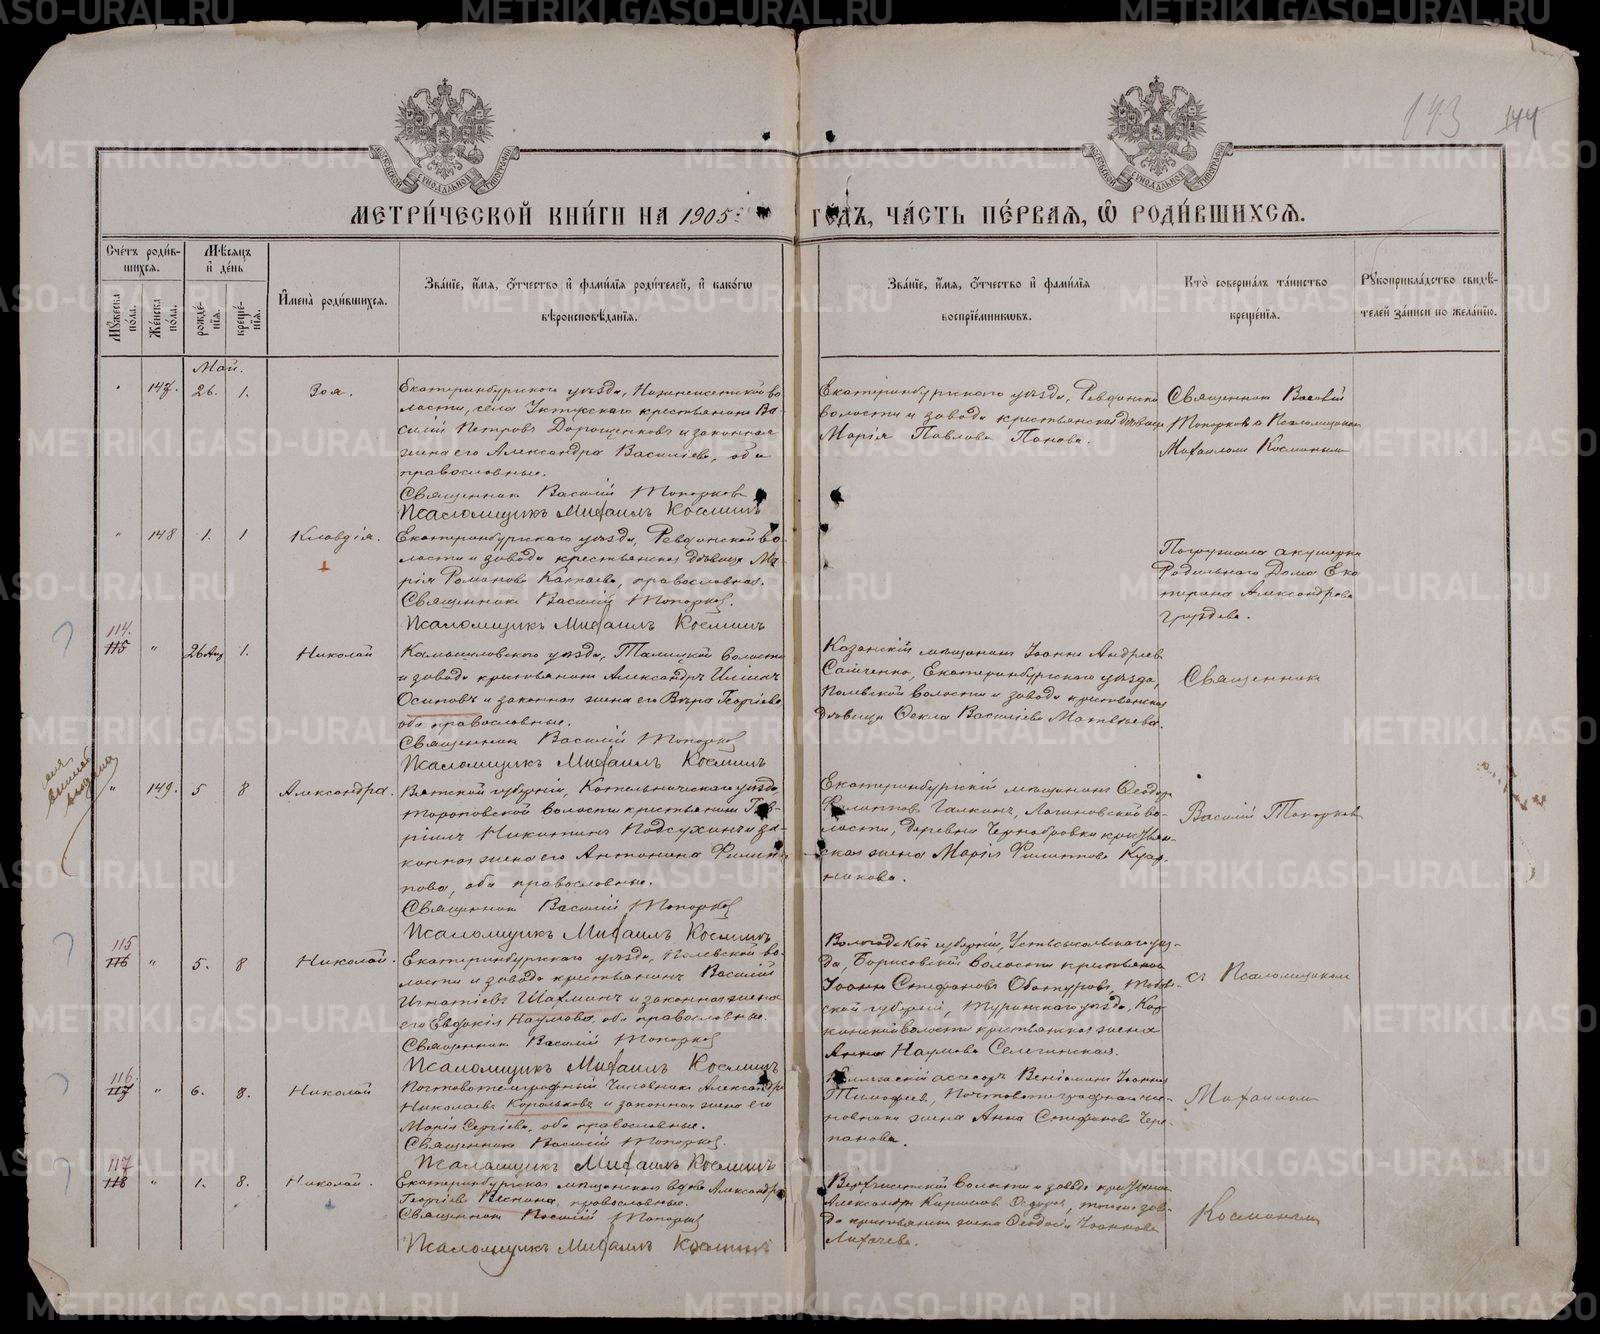 143 144
МЕТРИ́ЧЕСКОЙ КНИ́ГИ НА 1905 ГО́ДЪ, ЧА́СТЬ ПЕ́РВАЯ, Ѡ РОДИ́ВШИХСЯ.
Сче́тъ роди́в-
шихся.
Мѹжеска по́ла.
Же́нска по́ла.
Мѣ́сяцъ
и҆ де́нь
рожде́-
нїя.
креще́-
нїя.
И҆мена̀ роди́вшихся.
Зва́нїе, и҆́мя, ѻ҆́тчество и҆ фами́лїя роди́телей, и҆ како́гѡ
вѣроисповѣ́данїя.
Зва́нїе, и҆́мя, ѻ҆́тчество и҆ фами́лїя
воспрїе́мникѡвъ.
Кто̀ соверша́лъ та́инство
креще́нїя.
Рѹкоприкла́дство свидѣ́-
телей за́писи по жела́нїю.
Май.
147. 26. 1. Зоя.
Екатеринбургскаго уѣзда, Нижнеисетской во-
лости, села Уктусскаго крестьянинъ Ва-
силій Петровъ Дорощенковъ и законная
жена его Александра Василіева, оба
православные.
Священникъ Василій Топорковъ
Псаломщикъ Михаилъ Косминъ
Екатеринбургскаго уѣзда, Ревдинской
волости и завода крестьянская дѣвица
Марія Павлова Панова.
Священникъ Василій
Топорковъ с Псаломщикомъ
Михаиломъ Косминымъ
148 1. 1 Клавдія.
Екатеринбургскаго уѣзда, Ревдинской во-
лости и завода крестьянская дѣвица Ма-
рія Романова Катаева, православная.
Священникъ Василій Топорковъ.
Псаломщикъ Михаилъ Косминъ
Погружала акушерка
Родильнаго Дома Ека-
терина Александрова
Груздева.
114.
115 " 26 Апр 1. Николай
Камышловскаго уѣзда, Талицкой волости
и завода крестьянинъ Александръ Илшинъ
Осиповъ и законная жена его Вѣра Георгіева
оба православные.
Священникъ Василій Топорковъ
Псаломщикъ Михаилъ Косминъ
Казанскій мѣщанинъ Іоаннъ Андреевъ
Саиченко, Екатеринбургскаго уѣзда,
Полевской волости и завода крестьянская
дѣвица Фекла Василіева Матвѣева.
Священникъ
" 149. 5 8 Александра.
Вятской губерніи, Котельническаго уѣзда
Тороповской волости крестьянинъ Гав-
ріилъ Никитинъ Подсухинъ и за-
конная жена его Антонина Филип-
пова, оба православные.
Священникъ Василій Топорковъ
Псаломщикъ Михаилъ Косминъ
Екатеринбургскій мѣщанинъ Феодоръ
Филипповъ Галкинъ, Логиновской во-
лости, деревни Чернобровки крестьян-
ская жена Марія Филиппова
Василій Топорковъ
115
116 " 5. 8 Николай.
Екатеринбургскаго уѣзда, Полевской во-
лости и завода крестьянинъ Василій
Игнатіевъ Шахминъ и законная жена
его Евфкія Наумова, оба православные.
Священникъ Василій Топорковъ
Псаломщикъ Михаилъ Косминъ
Вологодской губерніи, Устьсысольскаго уѣз-
да, Борисовской волости крестьянинъ
Іоаннъ Стефановъ Обатуровъ, Тоболь-
ской губерніи, Туринскаго уѣзда,
волости крестьянская жена
Анна Наумова Селегинская.
съ Псаломщикомъ
116.
117 " 6. 8. Николай
Почтовотелеграфный чиновникъ Александръ
Николаевъ Корольковъ и законная жена его
Марія Сергіева, оба православные.
Священникъ Василій Топорковъ.
Псаломщикъ Михаилъ Косминъ
Коллежскій асесоръ Веніаминъ Іоанновъ
Тимофеевъ, Почтовотелеграфнаго чи-
новника жена Анна Стефанова Чере-
панова.
Михаиломъ
117
118 " 1. 8. Николай.
Екатеринбургская мѣщанская вдова Александра
Георгіева Веснина, православные.
Священникъ Василій Топорковъ
Псаломщикъ Михаилъ Косминъ
Верхисетской волости и завода крестьянинъ
Александръ Кириловъ Федоровъ, того же заво-
да крестьянина жена Феодосія Іоаннова
Лихачева.
Косминымъ
METRIKI.GASO-URAL.RU